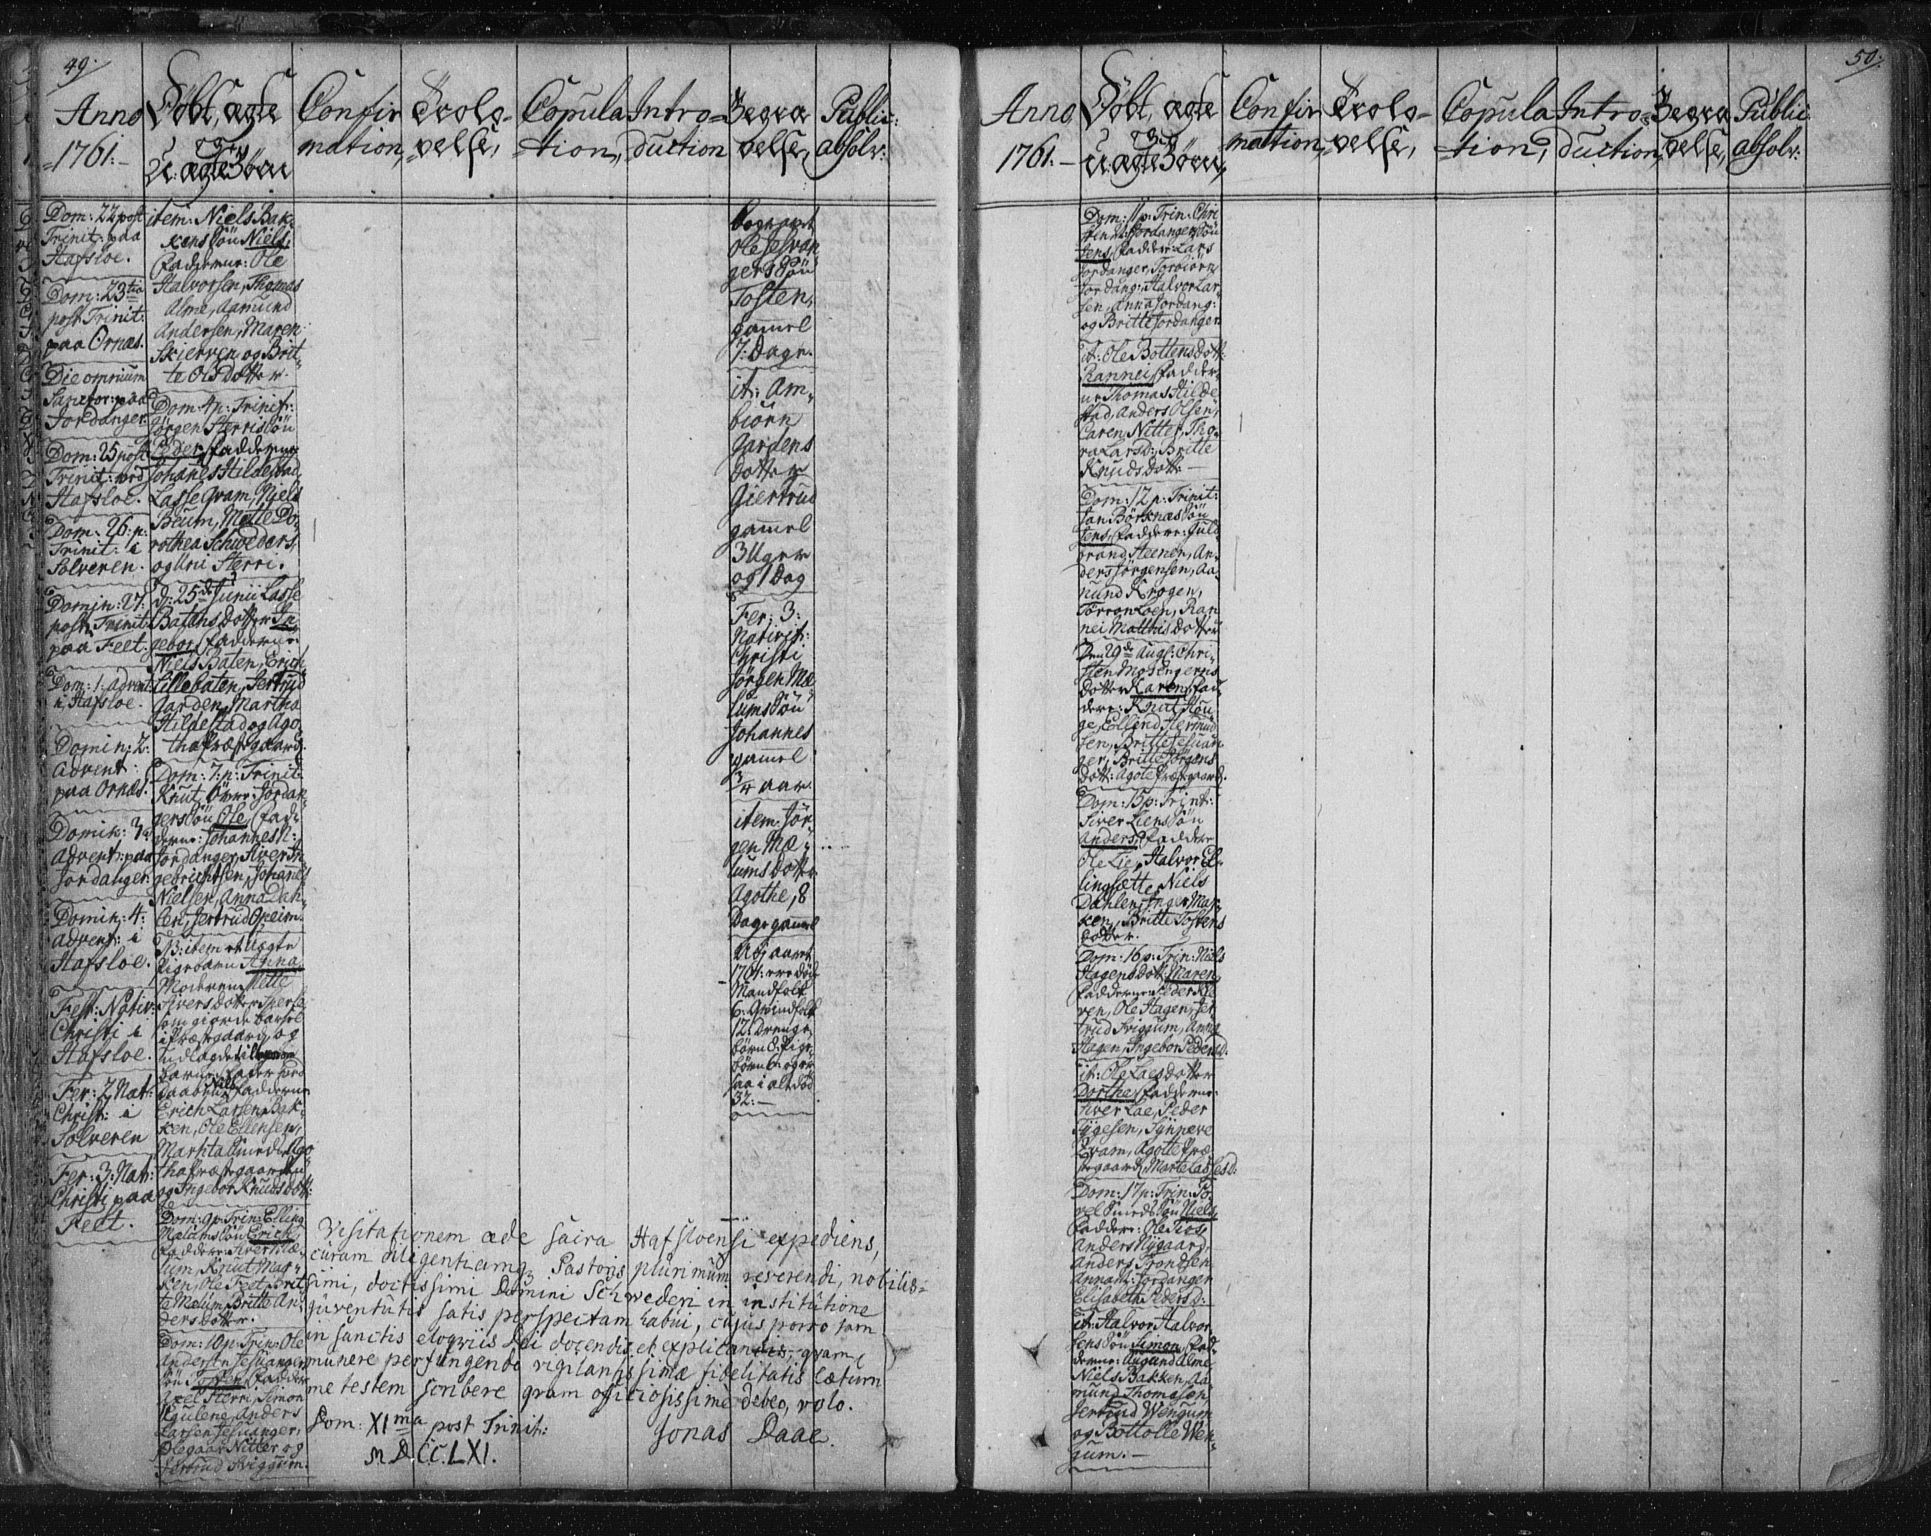 49.
Anno
1761.
Døbt, ægte
U: ægte Børn
Confir
mation,
Trolo-
velse,
Copula
tion,
Intro-
duction
Begra
velse,
Public:
absolv:
Dom: 22 post
Trinit: paa
Hafsloe.
Dom: 23tia
post Trinit:
paa Ornæs.
Die omnium
Sanctor: paa
Jordanger.
Dom: 25 post
Trinit: ved
Hafsloe.
Dom: 26: p:
Trinit: i
Solveren.
Domin: 27:
post Trinit:
paa Feet.
Dom: 1: Advent:
i Hafsloe.
Domin: 2:
Advent:
paa Ornæs.
Domin: 3:
Advent: paa
Jordanger.
Domin: 4:
Advent: i
Hafsloe.
Fest: Nativ:
Christi i
Hafsloe.
Fer: 2 Nat:
Christ: i
Solveren
Fer: 3: Nat:
Christi paa
Feet.
item: Niels Bak-
kens Søn Niels,
Fadderne: Ole
Halvorsen, Thomas
Alme, Aamund
Andersen, Maren
Skierven og Brit-
te Ols dotter.
Dom: 4 p: Trinit:
Jörgen Herris Sön
Peder, Fadderne
Johanes Hildestad,
Lasse Qvam, Niels
Beum, Mette Do-
rothea Schweders,
og Uni Herri.
D: 25de Junii Lasse
Batens Dotter In
gebor, Fadderne:
Niels Baten, Erich
Lillebaten, Jertrud
Garden, Martha
Hildestad og Ago-
tha Præstegaard.
Dom: 7: p: Trinit:
Knut Övre: Jordan-
gers Søn Ole, Fad-
derne: Johannes N:
Jordanger, Siver In-
gebrichtsen, Johannes
Nielsen, Anna Dah-
len, Jertrud Opeim.
item et Uægte
Pigebarn Anna,
Moderen Mette
Sivers dotter
som giorde barsel
i Præstegaard, og
udlagde til
barne Fader
Niels
Fadderne
Erich Larsen Bak-
ken, Ole Ellensen,
Marhta Smed Ago
tha Præstegaarden
og Ingebor Knuds dott:
Dom: 9 p: Trin: Elling
Mælums Søn Erich,
Faddere: Siver Mæ-
lum, Knut Mar-
ken, Ole Feet, Brit
te Mælum, Britte An-
ders dotter.
Dom: 10 p: Trin: Ole
Andersen Jesvanger
Søn Tosten, Faddere
Axel Herri, Simon
Kgulene, Anders
Larsen Jesvanger,
Olegaar Nitter og
Jertrud Sviggum.
Begravet
Ole Jesvan
gers Sön
Tosten,
gammel
7: Dage.
it: Am-
biörn
Gardens
dotter
Giertrud
gammel
3 Uger
og 1 Dag
Fer: 3:
Nativit:
Christi
Jörgen Mæ
lums Søn
Johannes
gammel
3/4 aar.
item Jör-
gen Mæ-
lums dotter
Agothe, 8
Dage gammel
Udj aaret
1761: ere död
Mandfolk
6: Qvindfolk
12: Drenge
börn 8: Pige
börn 6: og er
saa i alt död
32:—
Visitationem æde sacra Hafsloensi expediens,
curam diligentiamq Pastoris plurimum reverendi, nobilis-
simi, doctissimi Domini Schwederi in institutione
juventutis satis perspectam habui, cujus porro tam
in sanctis eloqviis Dei docendis et explicandis, qvam
munere perfungendo vigilantissimæ fidelitatis lætum
me testem scribere qvam officiosissime debeo, volo.
Dom: XIma post Trinit:
MDCCLXI.
Jonas Daae.
50.
Anno
1761.—
Døbt, ægte
og
U: ægte Børn,
Confir
mation,
Trolo-
velse,
Copula
tion,
Intro-
duction,
Begra
velse,
Public:
absolv:
Dom: 11 p: Trin: Chri
sten Jordangers Sön
Jens, Faddere: Lars
Jordanger, Torbiörn
Jordang: Halvor Lar-
sen, Anna Jordang:
og Britte Jordanger
it: Ole Bottens dott:
Rannei, Fadder-
ne Thomas Hilde
stad, Anders Olsen,
Caren Nitter, Tho-
ra Larsd: Britte
Knuds dotter —
Dom: 12 p: Trinit:
Jan Börknæs Sön
Jens, Faddere: Guld
brand Steenen, An-
ders Jörgensen, Aa-
mund Krogen,
Torron Loen, Ran
nei Matthis dotter
Den 29de Aug: Chri-
sten Mosengens
dotter Karen, Fad
dere: Knut Hau
ge, Ellend Hermud
sen, Britte Jesvan
ger, Britte Jörgens
dott: Agote Præstgaard.
Dom: 15 p: Trinit:
Siver Liens Søn
Anders, Faddere
Ole Lie, Halvor El-
lingsætte, Niels
Dahlen, Inger Mar
ken, Britte Tostens
dotter.
Dom: 16 p: Trin: Niels
Hagens dott: Maren
Fadderne Peder Ki
ren, Ole Hagen, Jer
trud Sviggum, Anna
Hagen, Ingebor Pedersd:
it: Ole Laes dotter
Dorthe, Fadderne:
Siver Lae, Peder
Tygesen, Synneve
Qvam, Agotte Præ
stegaard, Marte Lasses d:
Dom: 17 p: Trin: Po
vel Smeds Søn Niels,
Faddere: Ole Kios,
Anders Nygaard,
Anders Trondsen
Anna N: Jordanger
Elisabeth Peders d:
it: Halvor Halvor
sens Sön Simon, Fad
derne: Augund Alme
Niels Bakken, Aa
mund Thomassen
Jertrud Wengum
og Bottolle Wen-
gum.—